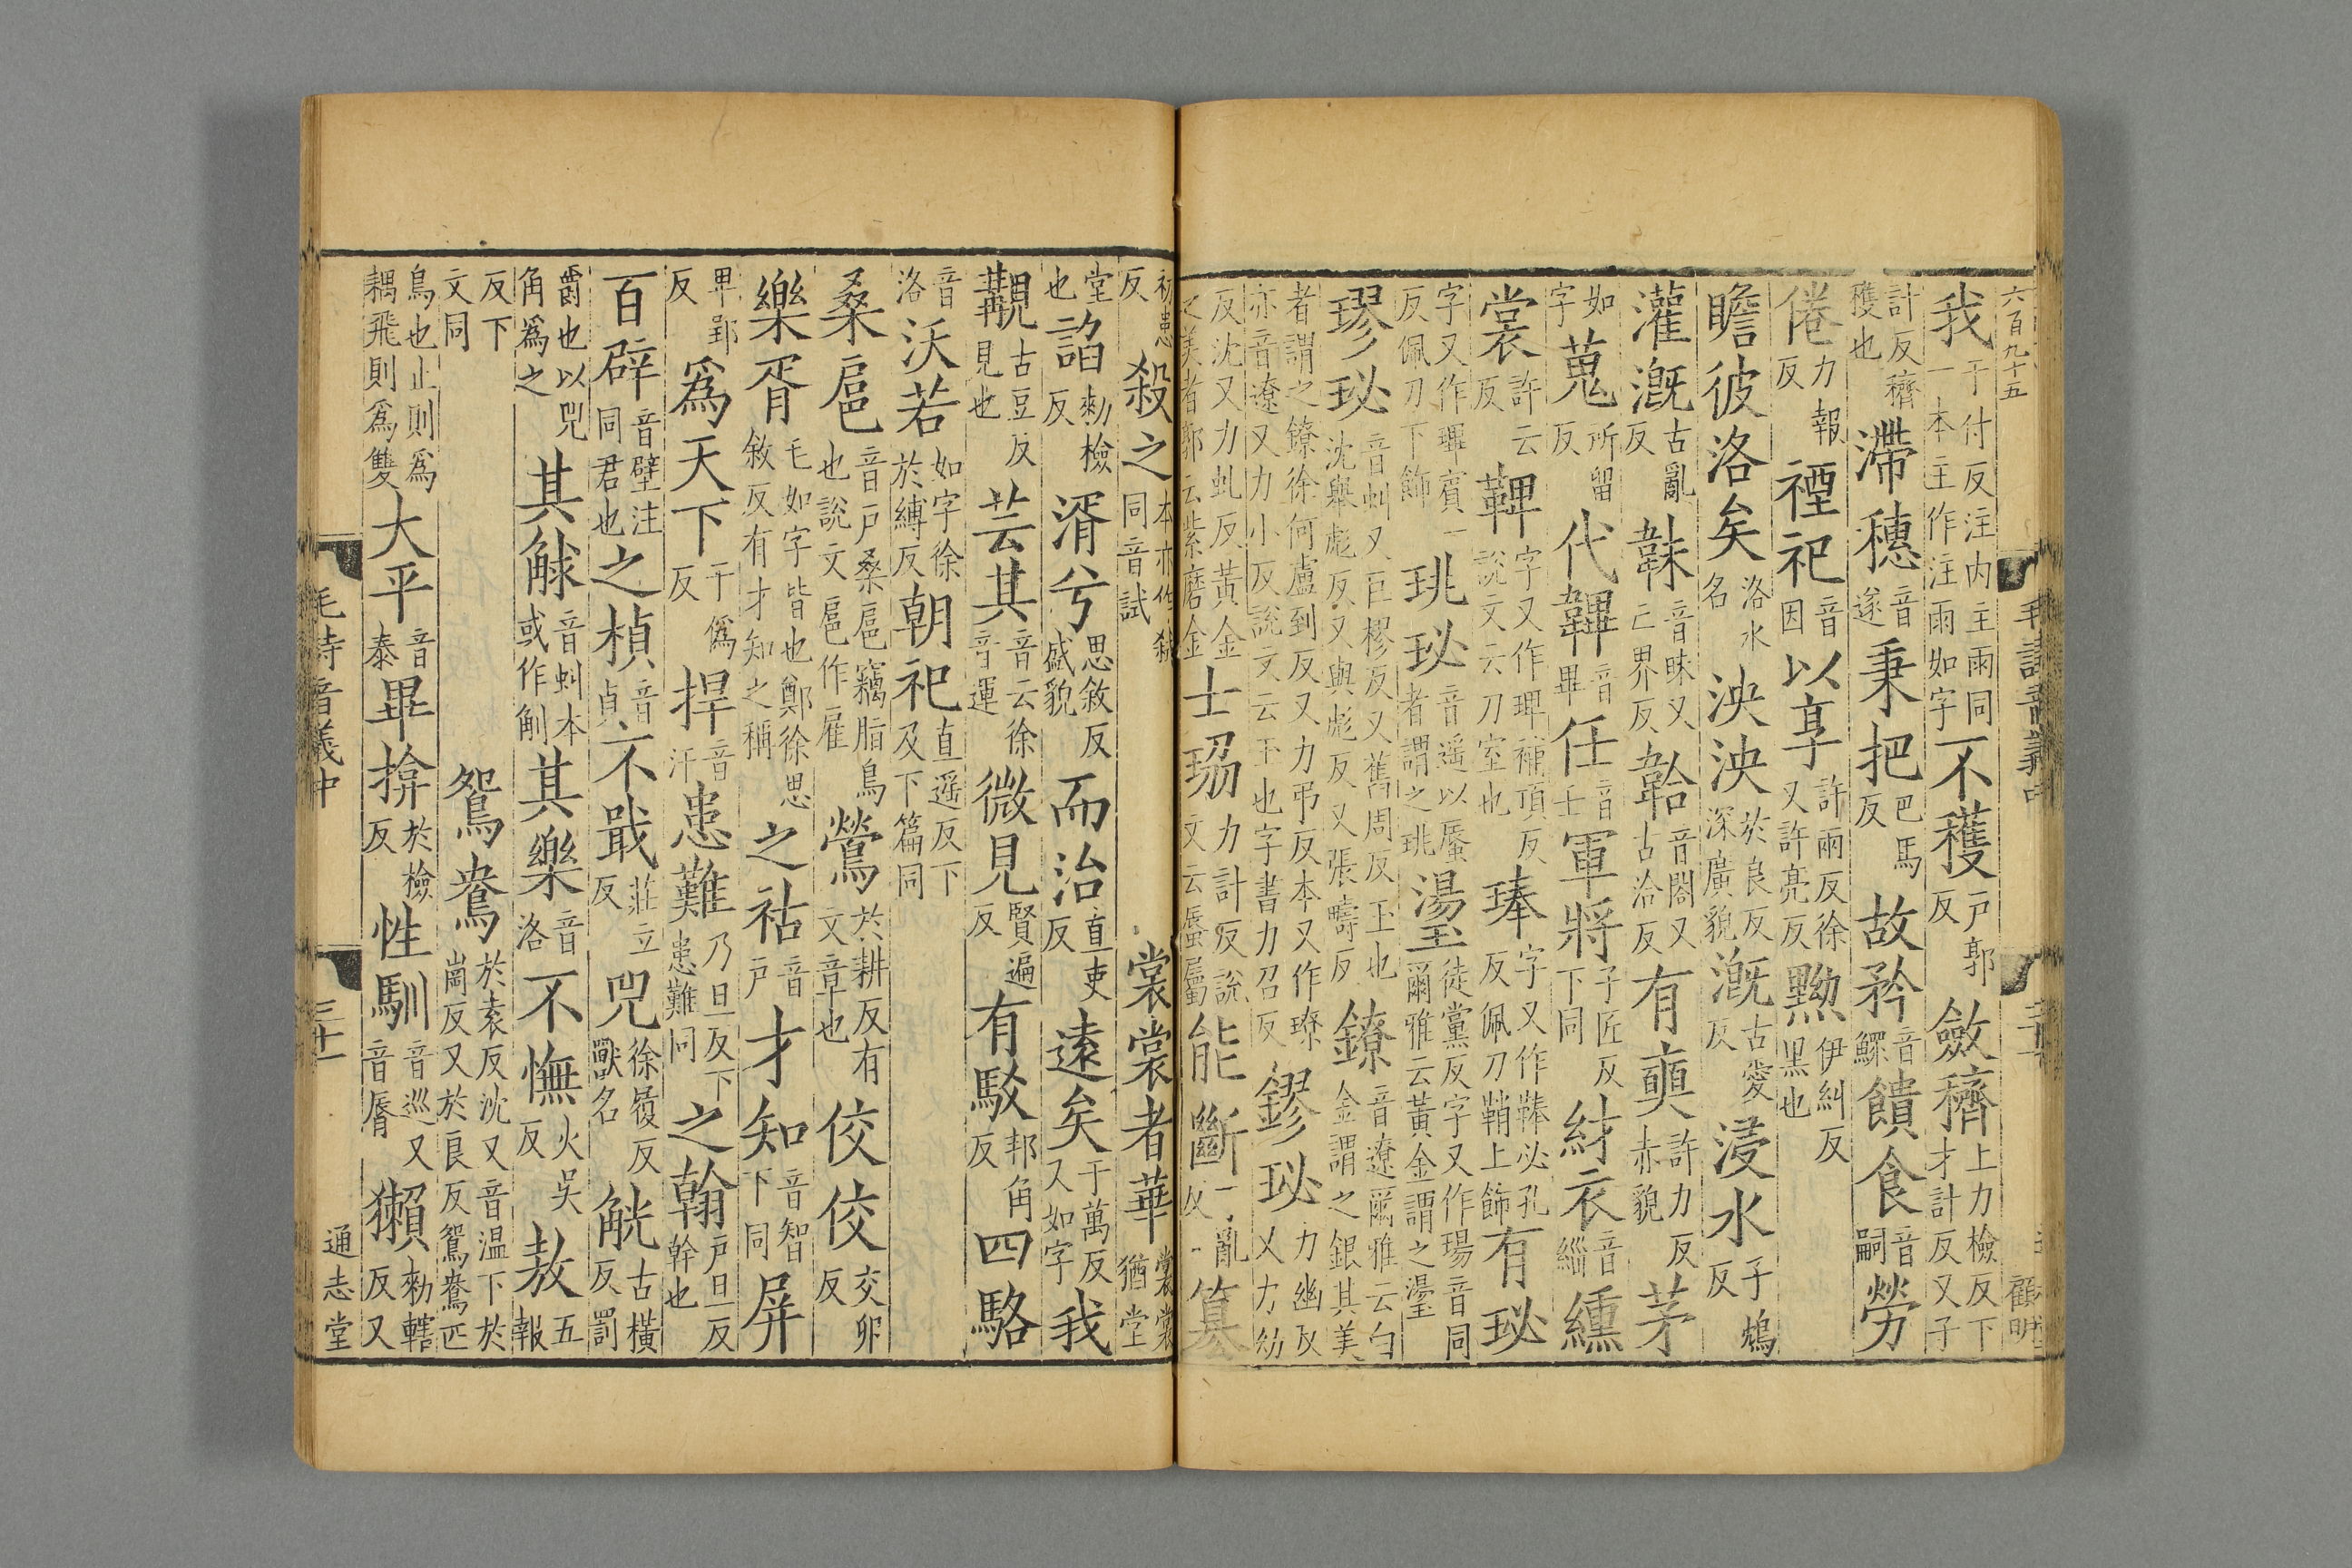 六百九十五
我于付反注内主雨同一本主作注雨如字不穫戸郭反斂穧上力檢反下才計反又子
計反穧穫也滯穗音遂秉把巴馬反故矜音鰥饋食音嗣勞
倦力報反禋祀音因以享許兩反徐又許亮反黝伊糾反黒也
瞻彼洛矣洛水名泱泱於良反深廣貌漑古愛反浸水子鴆反
灌漑古亂反韎音昧又亡界反韐音閤又古洽反有奭許力反赤貌茅
蒐所留反代韠音畢任音士軍將子匠反下同紂衣音緇纁
裳許云反鞞字又作琕補頂反說文云刀室也琫字又作鞛必孔反佩刀鞘上飾有珌
字又作琕賓一反佩刀下飾珧珌音遥以蜃者謂之珧璗徒黨反字又作瑒音同爾雅云黃金謂之璗
璆珌音虯又巨樛反又舊周反玉也沈舉彪反又與彪反又張疇反鐐音遼爾雅云白金謂之銀其美
者謂之鐐徐何盧到反又力弔反本又作璙亦音遼又力小反說文云玉也字書力召反鏐珌力幽反又力幼
反沈又力虬反黃金之美者郭云紫磨金士珕力計反說文云蜃屬能斷一亂反篡
初患反殺之本亦作弒同音試裳裳者華裳裳猶堂
堂也諂勑檢反湑兮思敘反盛貌而治直吏反遠矣于萬反又如字我
覯古豆反見也芸其音云徐音運微見賢遍反有駁邦角反四駱
音洛沃若如字徐於縛反朝祀直遥反下及下篇同
桑扈音戸桑扈竊脂鳥也說文扈作雇鶯於耕反有文章也佼佼交卯反
樂胥毛如字皆也鄭徐思敘反有才知之稱之祜音戸才知音智下同屏
卑郢反爲天下于僞反捍音汗患難乃旦反下患難同之翰戸旦反幹也
百辟音壁注同君也之楨音貞不戢莊立反兕徐履反獸名觥古橫反罰
爵也以兕角爲之其觩音虯本或作觓其樂音洛不憮火吳反敖五報
反下文同鴛鴦於袁反沈又音温下於崗反又於良反鴛鴦匹
鳥也止則爲耦飛則爲雙大平音泰畢揜於檢反性馴音巡又音脣獺勑轄反又
毛詩音義中
三十一
通志堂